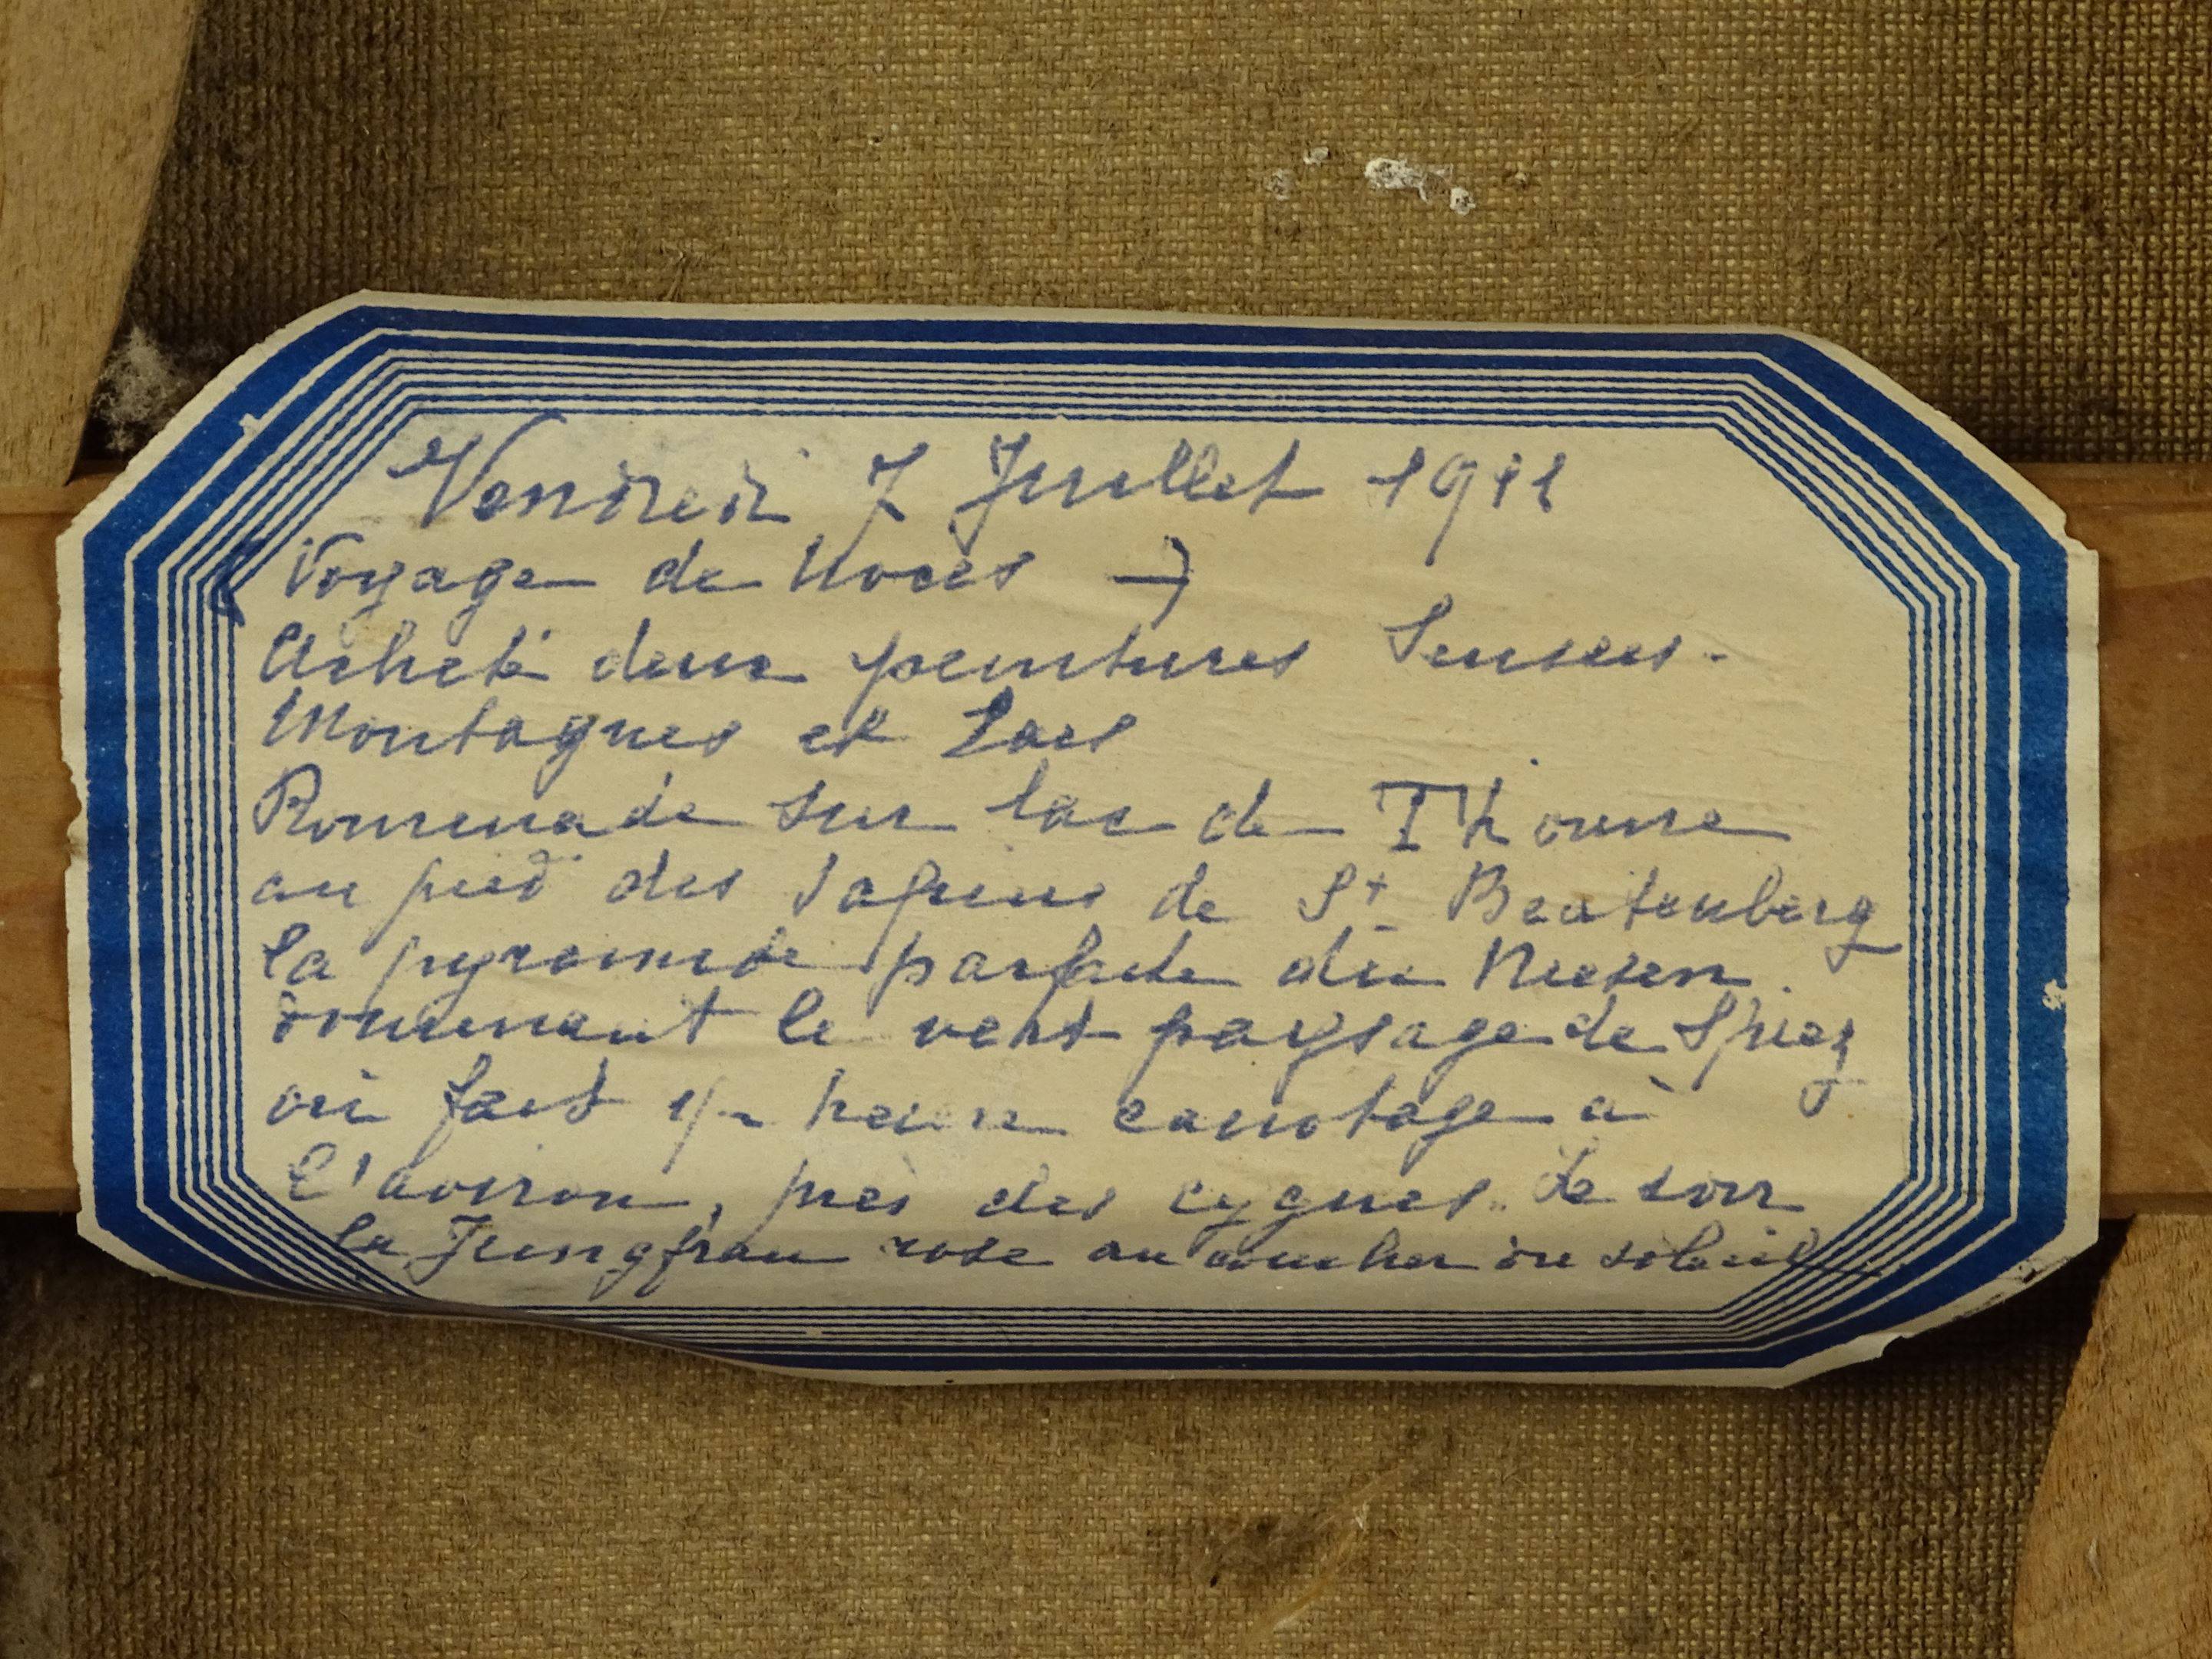 Vendredi 7 Juillet 1911
(Voyage de Noces →)
Acheté deux peintures Suisses.
Montagnes et Lacs
Promenade sur lac de Thoune
au pied des sapins de St Beatenberg
la pyramide parfaite du Niesen.
dominant le vert paysage de Spiez
où fait 1/2 heure canotage à
l'aviron, près des cygnes. Le soir
la Jungfrau rose au coucher du soleil